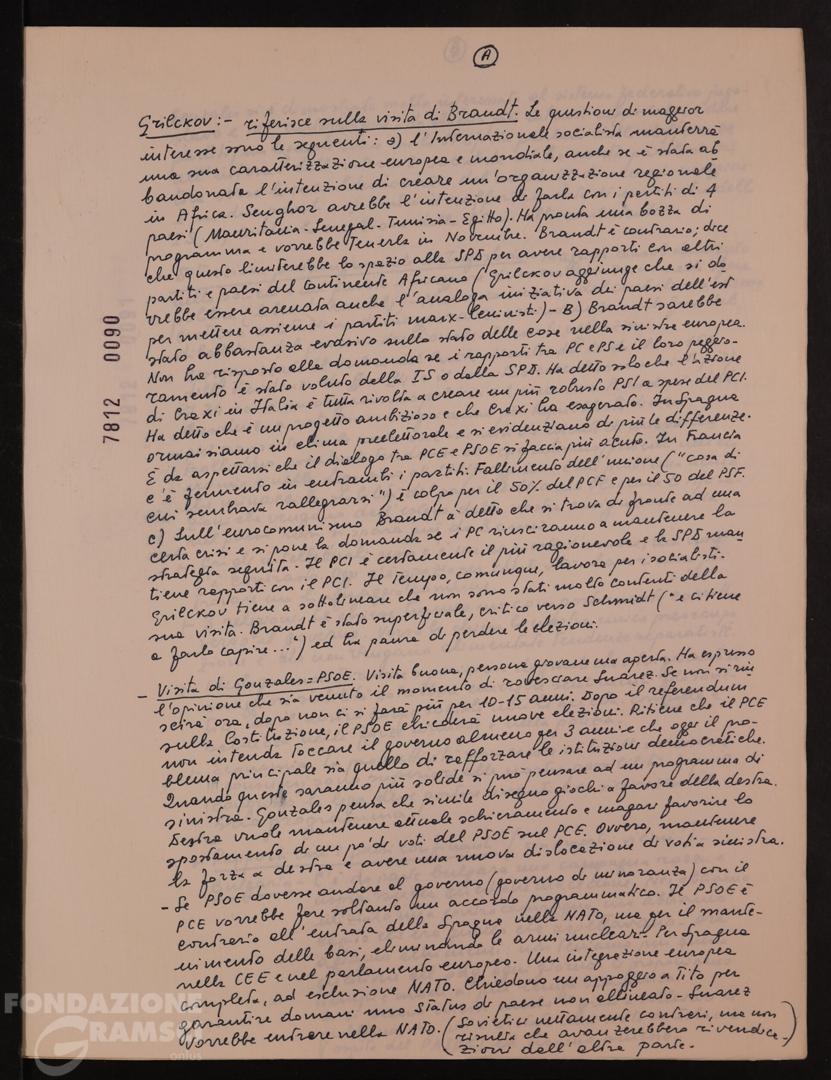 A
Grlickov:- riferisce sulla visita di Brandt. Le questioni di maggior
interesse sono le seguenti: a) l'Internazionale socialista manterrà
una sua caratterizzazione europea e mondiale, anche se è stata ab
bandonata l'intenzione di creare un'organizzazione regionale
in Africa. Senghor avrebbe l'intenzione di farla con i partiti di 4
paesi (Mauritania-Senegal-Tunisia-Egitto). Ha pronta una bozza di
programma e vorrebbe tenerla in Novembre. Brandt è contrario; dice
che questo limiterebbe lo spazio alla SPD per avere rapporti con altri
partiti e paesi del continente Africano (Grlickov aggiunge che si do
vrebbe essere arenata anche l'analoga iniziativa dei paesi dell'est
per mettere assieme i partiti marx-leninisti)- B) Brandt sarebbe
stato abbastanza evasivo sullo stato delle cose nella sinistra europea.
Non ha risposto alla domanda se i rapporti tra PC e PS e il loro peggio-
ramento è stato voluto della IS o dalla SPD. Ha detto solo che l'azione
di Craxi in Italia è tutta rivolta a creare un più robusto PSI a spese del PCI.
Ha detto che è un progetto ambizioso e che Craxi ha esagerato. In Spagna
ormai siamo in clima preelettorale e si evidenziano di più le differenze.
È da aspettarsi che il dialogo tra PCE e PSOE si faccia più acuto. In Francia
c'è fermento in entrambi i partiti. Fallimento dell'unione ("cosa di
cui sembrava rallegrarsi") è colpa per il 50% del PCF e per il 50 del PSF.
c) Sull'eurocomunismo Brandt à detto che si trova di fronte ad una
certa crisi e si pone la domanda se i PC riusciranno a mantenere la
strategia seguita. Il PCI è certamente il più ragionevole e la SPD man
tiene rapporti con il PCI. Il tempo, comunque, lavora per i socialisti.
Grlickov tiene a sottolineare che non sono stati molto contenti della
sua visita. Brandt è stato superficiale, critico verso Schmidt ("e ci tiene
a farlo capire...") ed ha paura di perdere le elezioni.
- Visita di Gonzales=PSOE. Visita buona, persona giovane ma aperta. Ha espresso
l'opinione che sia venuto il momento di rovesciare Suarez. Se non si riu
scirà ora, dopo non ci si farà più per 10-15 anni. Dopo il referendum
sulla Costituzione, il PSOE chiederà nuove elezioni. Ritiene che il PCE
non intenda toccare il governo almeno per 3 anni e che oggi il pro-
blema principale sia quello di rafforzare le istituzioni democratiche.
Quando queste saranno più solide si può pensare ad un programma di
sinistra. Gonzales pensa che simile disegno giochi a favore della destra.
Destra vuole mantenere attuale schieramento e magari favorire lo
spostamento di un po' di voti del PSOE sul PCE. Ovvero, mantenere
la forza a destra e avere una nuova dislocazione di voti a sinistra.
- Se PSOE dovesse andare al governo (governo di minoranza) con il
PCE vorrebbe fare soltanto un accordo programmatico. Il PSOE è
contrario all'entrata della Spagna nella NATO, ma per il mante-
nimento delle basi, eliminando le armi nucleari. Per Spagna
nella CEE e nel parlamento europeo. Una integrazione europea
completa, ad esclusione NATO. Chiedono un appoggio a Tito per
garantire domani uno status di paese non allineato - Suarez
vorrebbe entrare nella NATO. (Sovietici nettamente contrari, ma non
risulta che avanzerebbero rivendica-
zioni dall'altra parte.)
7812 0090
FONDAZIONE
GRAMSCI
onlus